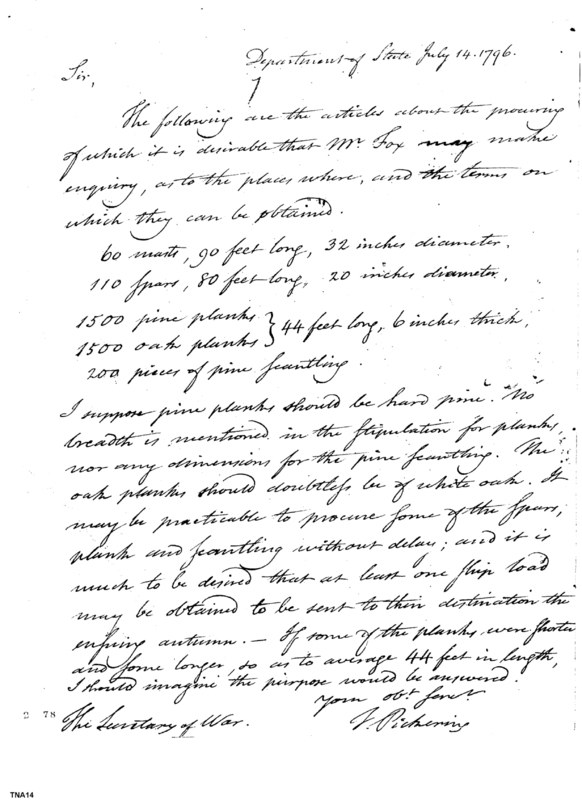 Department of State July 14. 1796.
Sir,
The following are the articles about the procuring
of which it is desirable that Mr. Fox may make
enquiry, as to the places where, and the terms on
which they can be obtained.
60 masts, 90 feet long, 32 inches diameter.
110 spars, 80 feet long, 20 inches diameter.
1500 pine planks
1500 oak planks } 44 feet long, 6 inches thick.
200 pieces of pine scantling.
I suppose pine planks should be hard pine. No
breadth is mentioned in the stipulation for planks,
nor any dimensions for the pine scantling. The
oak planks should doubtless be of white oak. It
may be practicable to procure some of the spars,
plank and scantling without delay; and it is
much to be desired that at least one ship load
may be obtained to be sent to their destination the
ensuing autumn. — If some of the planks were shorter
and some longer, so as to average 44 feet in length,
I should imagine the purpose would be answered.
Your obt. servt.
The Secretary of War. T. Pickering
2 78
TNA14